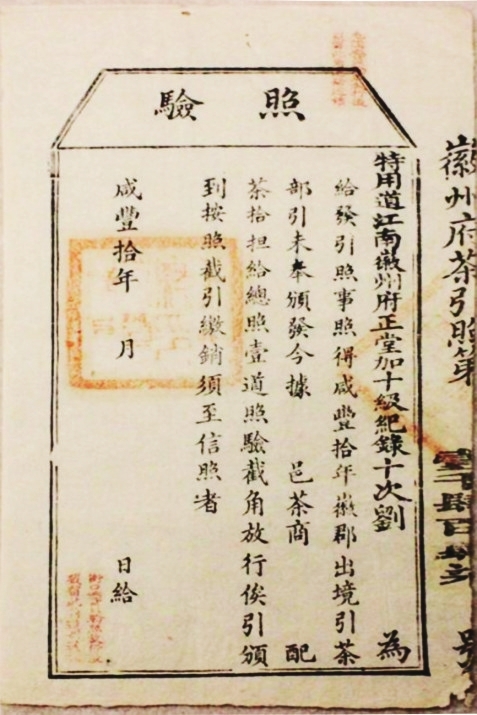 徽州府茶引照第
號
照驗
特用道江南徽州府正堂加十級紀錄十次劉 為
給發引照事照得咸豐拾年徽郡出境引茶
部引未奉頒發今據 邑茶商 配
茶拾担給總照壹道照驗截角放行俟引頒
到按照截引繳銷須至信照者
咸豐拾年 月 日給